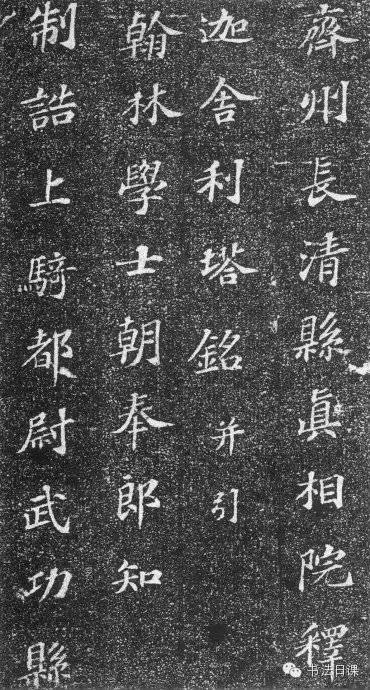 齊州長清縣真相院釋
迦舍利塔銘并引
翰林學士朝奉郎知
制誥上騎都尉武功縣
书法日课